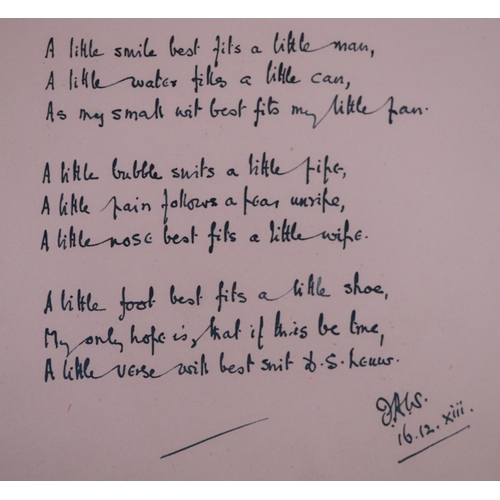 A little smile best fits a little man,
A little water fills a little can,
As my small wit best fits my little pan.
A little bubble suits a little pipe,
A little pain follows a pear unripe,
A little nose best fits a little wipe.
A little foot best fits a little shoe,
My only hope is, that if this be true,
A little verse will best suit D.S.
16.12.xiii.